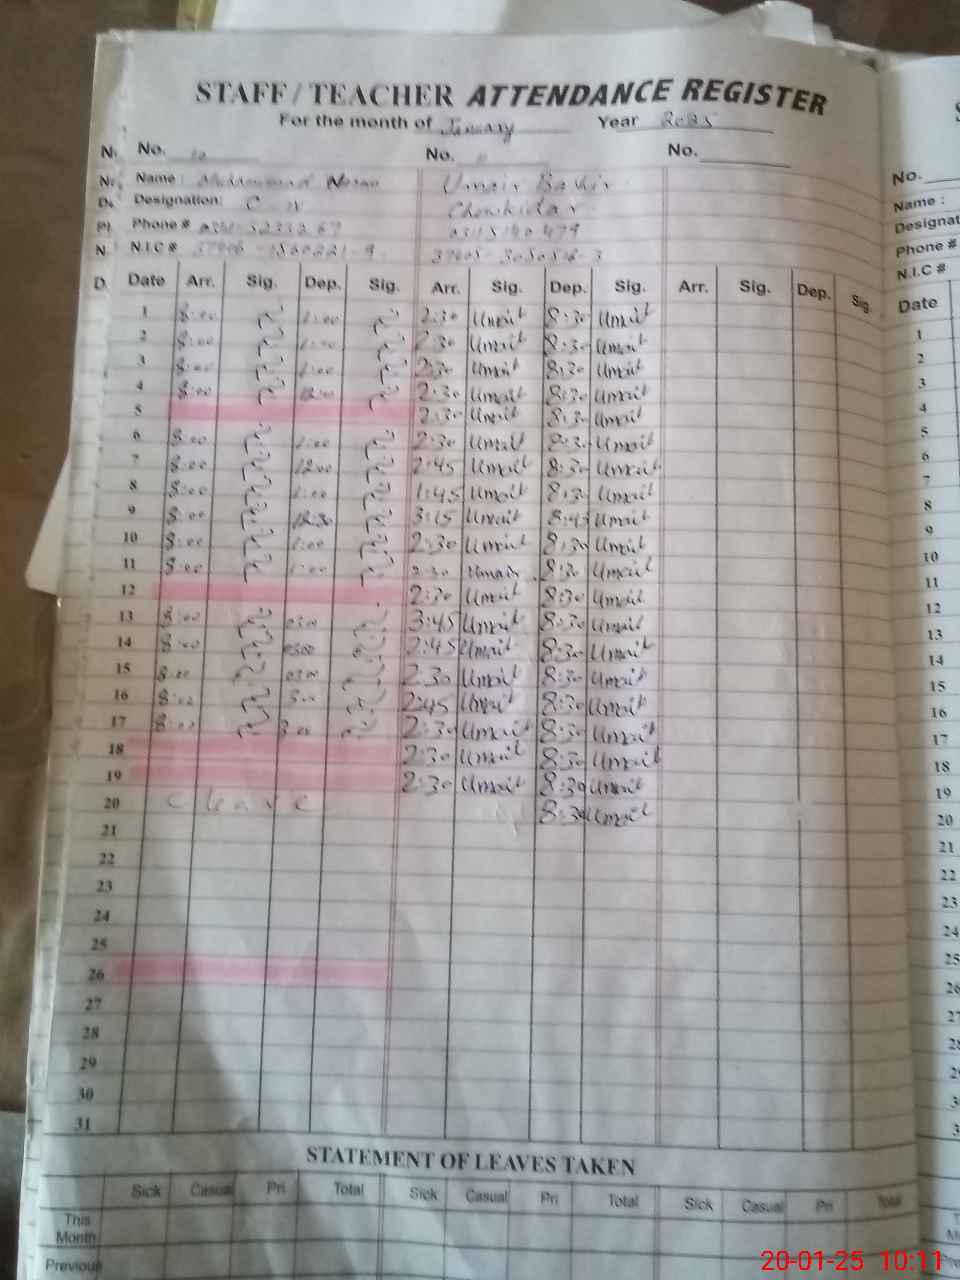 STAFF / TEACHER ATTENDANCE REGISTER
For the month of January Year 2025
No. 10 No. 11 No.
Name : Muhammad Umair Bashir
Designation: C-IV Chowkidar
Phone # 03115140479
N.I.C # 37405-
Date Arr. Sig. Dep. Sig. Arr. Sig. Dep. Sig. Arr. Sig. Dep. Sig.
1 8:00 1:00 2:30 Umair 8:30 Umair
2 8:00 1:00 2:30 Umair 8:30 Umair
3 8:00 1:00 2:30 Umair 8:30 Umair
4 8:00 2:30 Umair 8:30 Umair
5 2:30 Umair 8:30 Umair
6 8:00 1:00 2:30 Umair 8:30 Umair
7 8:00 12:00 2:45 Umair 8:30 Umair
8 8:00 1:00 1:45 Umair 8:30 Umair
9 8:00 12:30 3:15 Umair 8:45 Umair
10 8:00 1:00 2:30 Umair 8:30 Umair
11 8:00 1:00 2:30 Umair 8:30 Umair
12 2:30 Umair 8:30 Umair
13 8:00 0300 3:45 Umair 8:30 Umair
14 8:00 0300 2:45 Umair 8:30 Umair
15 8:00 0300 2:30 Umair 8:30 Umair
16 8:00 3:00 2:45 Umair 8:30 Umair
17 8:00 3:00 2:30 Umair 8:30 Umair
18 2:30 Umair 8:30 Umair
19 2:30 Umair 8:30 Umair
20 C leave 8:30 Umair
21
22
23
24
25
26
27
28
29
30
31
STATEMENT OF LEAVES TAKEN
Sick Casual Pri Total Sick Casual Pri Total Sick Casual Pri Total
This
Month
Previous
No.
Name :
Phone #
N.I.C #
Date
1
2
3
4
5
6
7
8
9
10
11
12
13
14
15
16
17
18
19
20
21
22
23
24
25
26
27
20-01-25 10:11